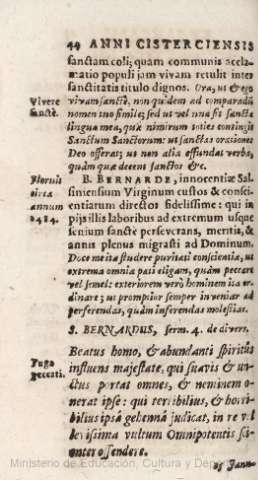 44 ANNI CISTERCIENSIS
sanctam coli; quam communis accla-
matio populi jam vivam retulit inter
sanctitatis titulo dignos. Ora, ut & ego
Vivere
sanctè.
vivam sanctè, non quidem ad comparadū
nomen tuo simile, sed ut vel una sit sancta
lingua mea, quæ nimirum toties contingit
Sanctum Sanctorum: ut sanctas orationes
Deo offerat; ut non alia effundat verba,
quàm quæ decent sanctos &c.
Floruit
circa
annum
1484.
B. BERNARDE, innocentiæ Sal-
siniensium Virginum custos & consci-
entiarum director fidelissime: qui in
pijs illis laboribus ad extremum usque
senium sanctè perseverans, meritis, &
annis plenus migrasti ad Dominum.
Doce me ita studere puritati conscientiæ, ut
extrema omnia pati eligam, quàm peccare
vel semel: exteriorem verò hominem ita or-
dinare; ut promptior semper inveniar ad
perferendas, quàm inferendas molestias.
S. BERNARDUS, serm. 4. de divers.
Fuga
peccati.
Beatus homo, & abundanti spiritûs
influens majestate, qui suavis &
ctus portat omnes, & neminem o-
nerat ipse: qui terribilius, & horri-
bilius ipsâ gehennâ judicat, in re vel
levissima vultum Omnipotentis sci-
enter offendere.
25 Jann-
Ministerio de Educación, Cultura y Deporte